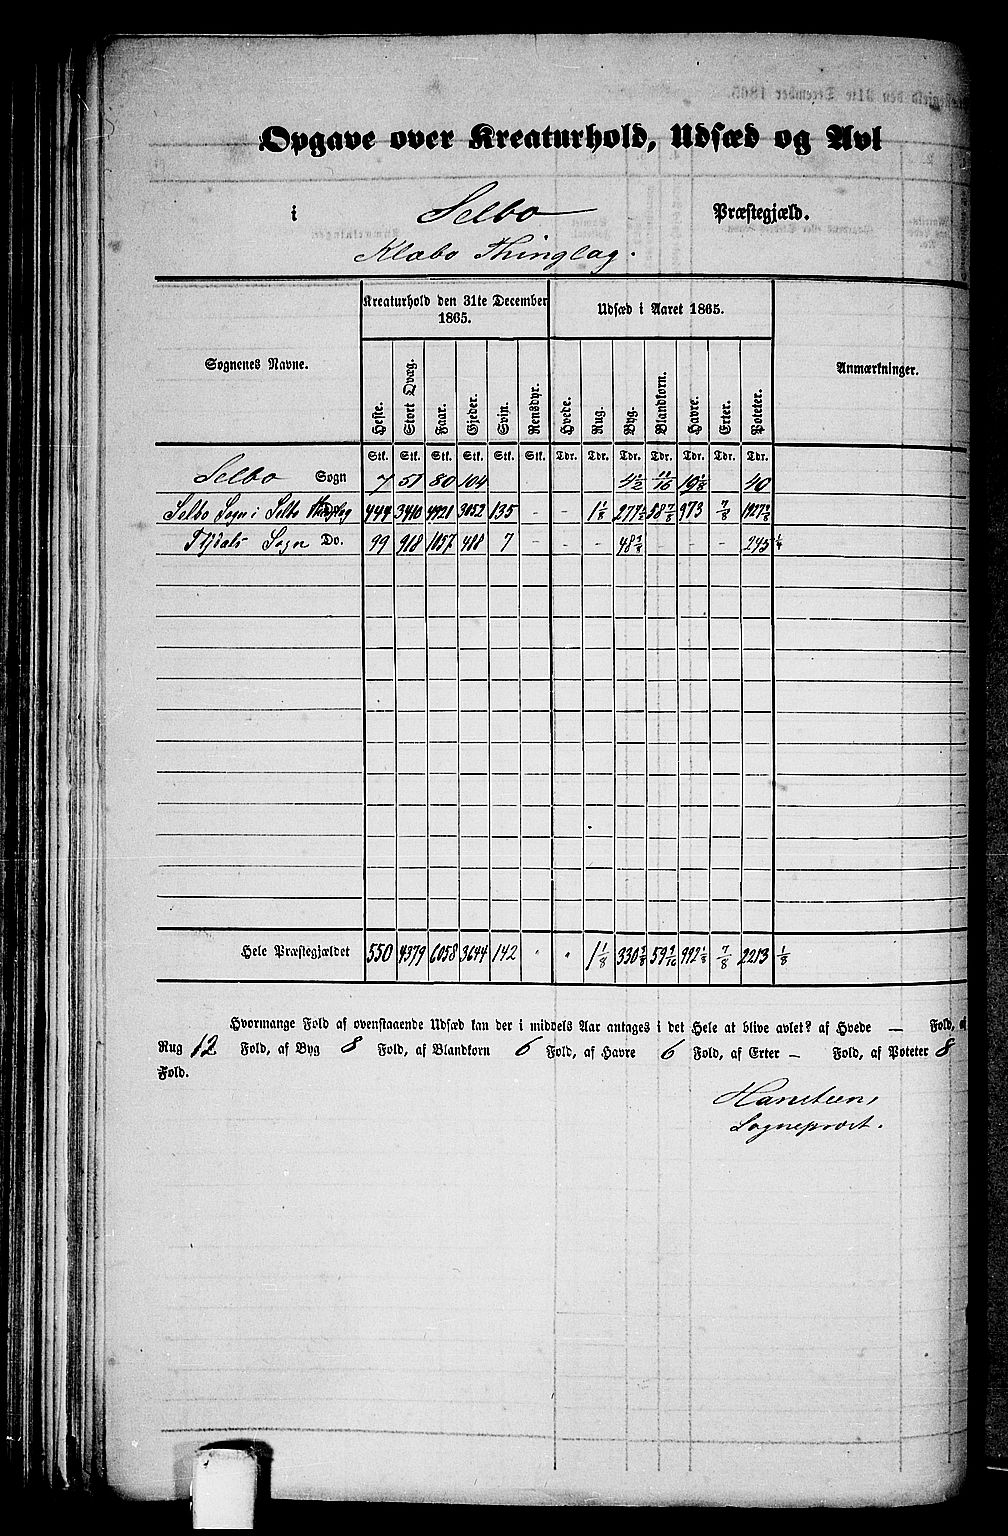 Opgave over Kreaturhold, Udsæd og Avl
i Selbo Præstegjæld.
Klæbo Thinglag.
Sognenes Navne. Kreaturhold den 31te December 1865. Udsæd i Aaret 1865. Anmærkninger.
Heste. Stort Qvæg. Faar. Gjeder. Svin. Rensdyr. Hvede. Rug. Byg. Blandkorn. Havre. Erter. Poteter.
Stk. Stk. Stk. Stk. Stk. Stk. Tdr. Tdr. Tdr. Tdr. Tdr. Tdr. Tdr.
Selbo Sogn 7 51 80 104 4 1/2 11/16 19 1/8 40
Selbo Sogn i Selbo 444 3410 4921 3052 135 - - 1 1/8 277 1/2 58 7/8 973 7/8 1927 7/8
Tydals Sogn Do. 99 918 1057 488 7 - - - 48 3/8 - - - 245 1/4
Hele Præstegjældet 550 4379 6058 3644 142 " " 1 1/8 330 3/8 59 9/16 992 1/8 7/8 2213 1/8
Hvormange Fold af ovenstaaende Udsæd kan der i middels Aar antages i det Hele at blive avlet? af Hvede — Fold, af
Rug 12 Fold, af Byg 8 Fold, af Blandkorn 6 Fold, af Havre 6 Fold, af Erter — Fold, af Poteter 8
Fold.
Hansteen,
Sogneprest.